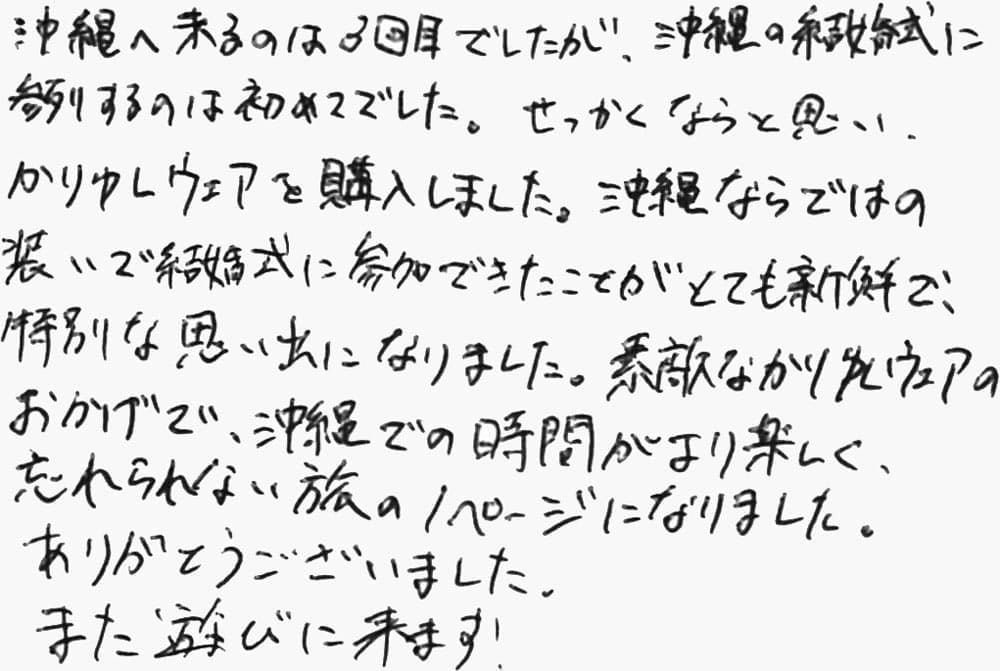 沖縄へ来るのは3回目でしたが、沖縄の結婚式に
参列するのは初めてでした。せっかくならと思い、
かりゆしウェアを購入しました。沖縄ならではの
装いで結婚式に参加できたことがとても新鮮で、
特別な思い出になりました。素敵なかりゆしウェアの
おかげで、沖縄での時間がより楽しく、
忘れられない旅の1ページになりました。
ありがとうございました。
また遊びに来ます!